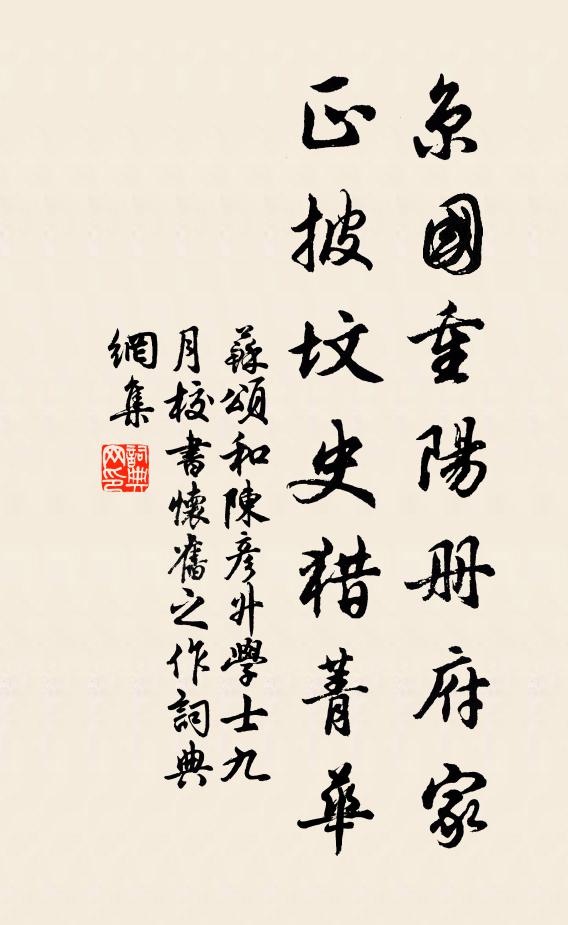 京國重陽册府家
正披坟史猎菁華
蘇頌和陳彦升學士九
月校書懷舊之作詞典
網集
詞典
网印